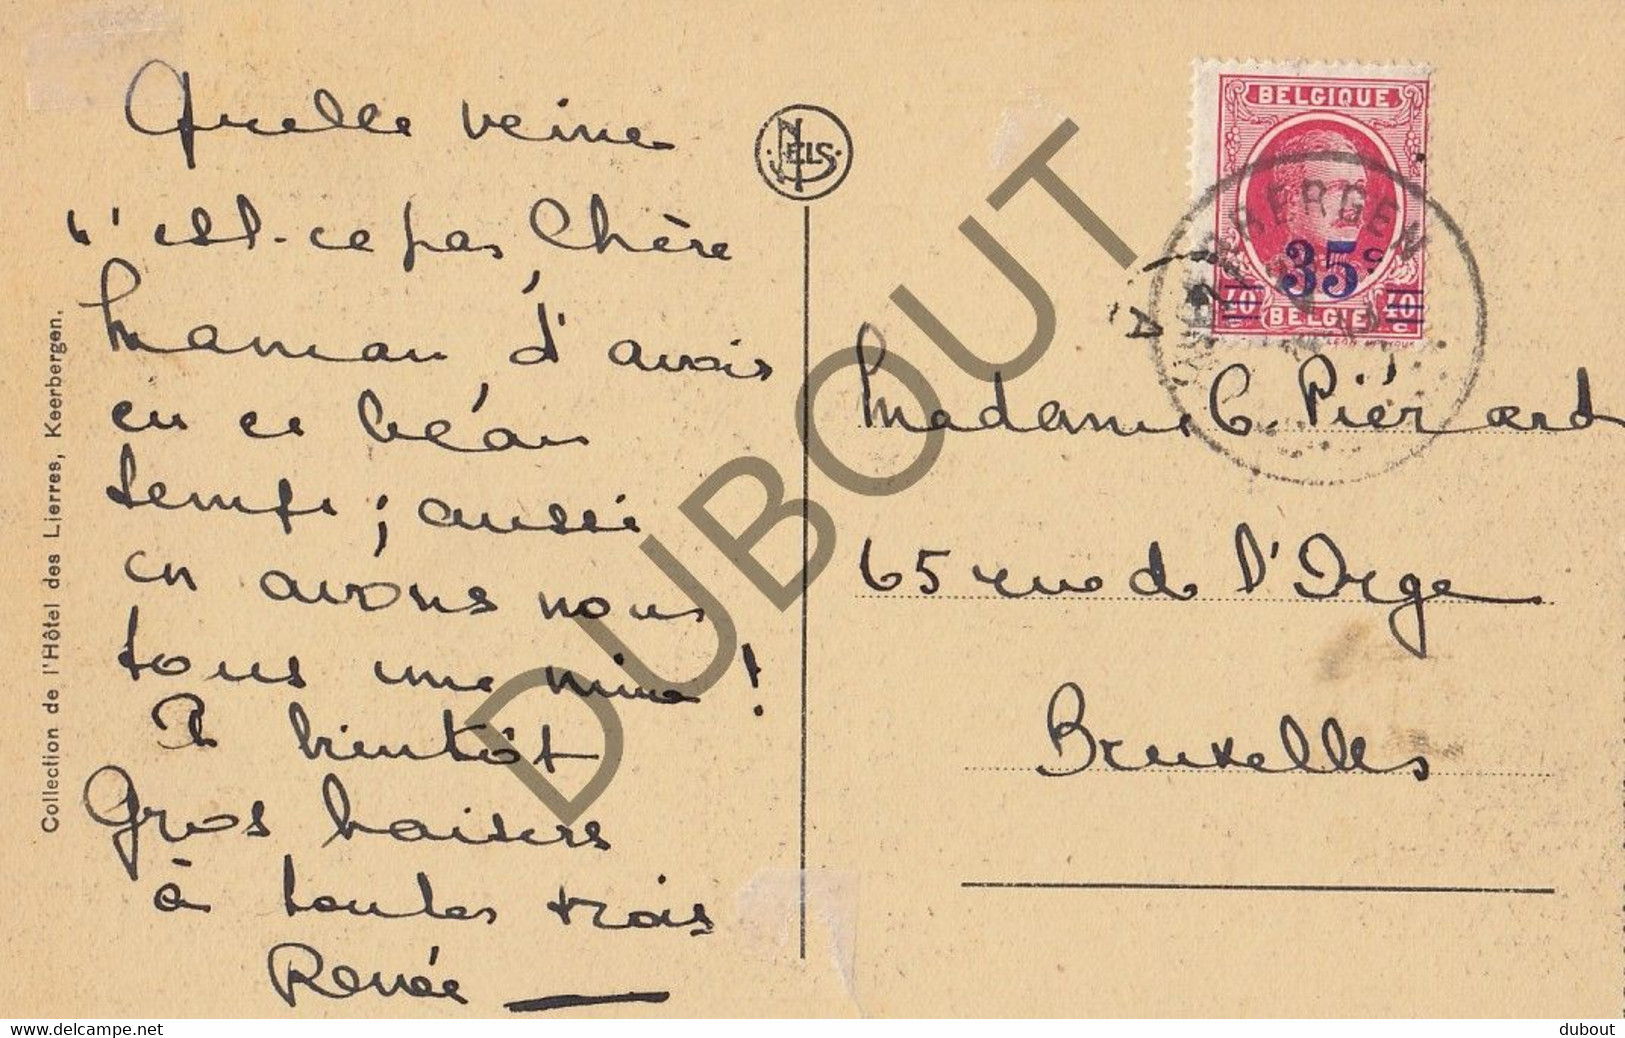 Quelle veine
n'est-ce pas, Chère
Maman d'avoir
eu ce beau
temps ; aussi
en avons nous
tous une mine !
A bientôt
Gros baisers
à toutes trois
Renée
Collection de l'Hôtel des Lierres, Keerbergen.
NELS
BELGIQUE
35c
40 40
c
BELGIE
KEERBERGEN
A
Madame C. Piérard
65 rue de l'Orge
Bruxelles
DUBOUT
delcampe.net
dubout